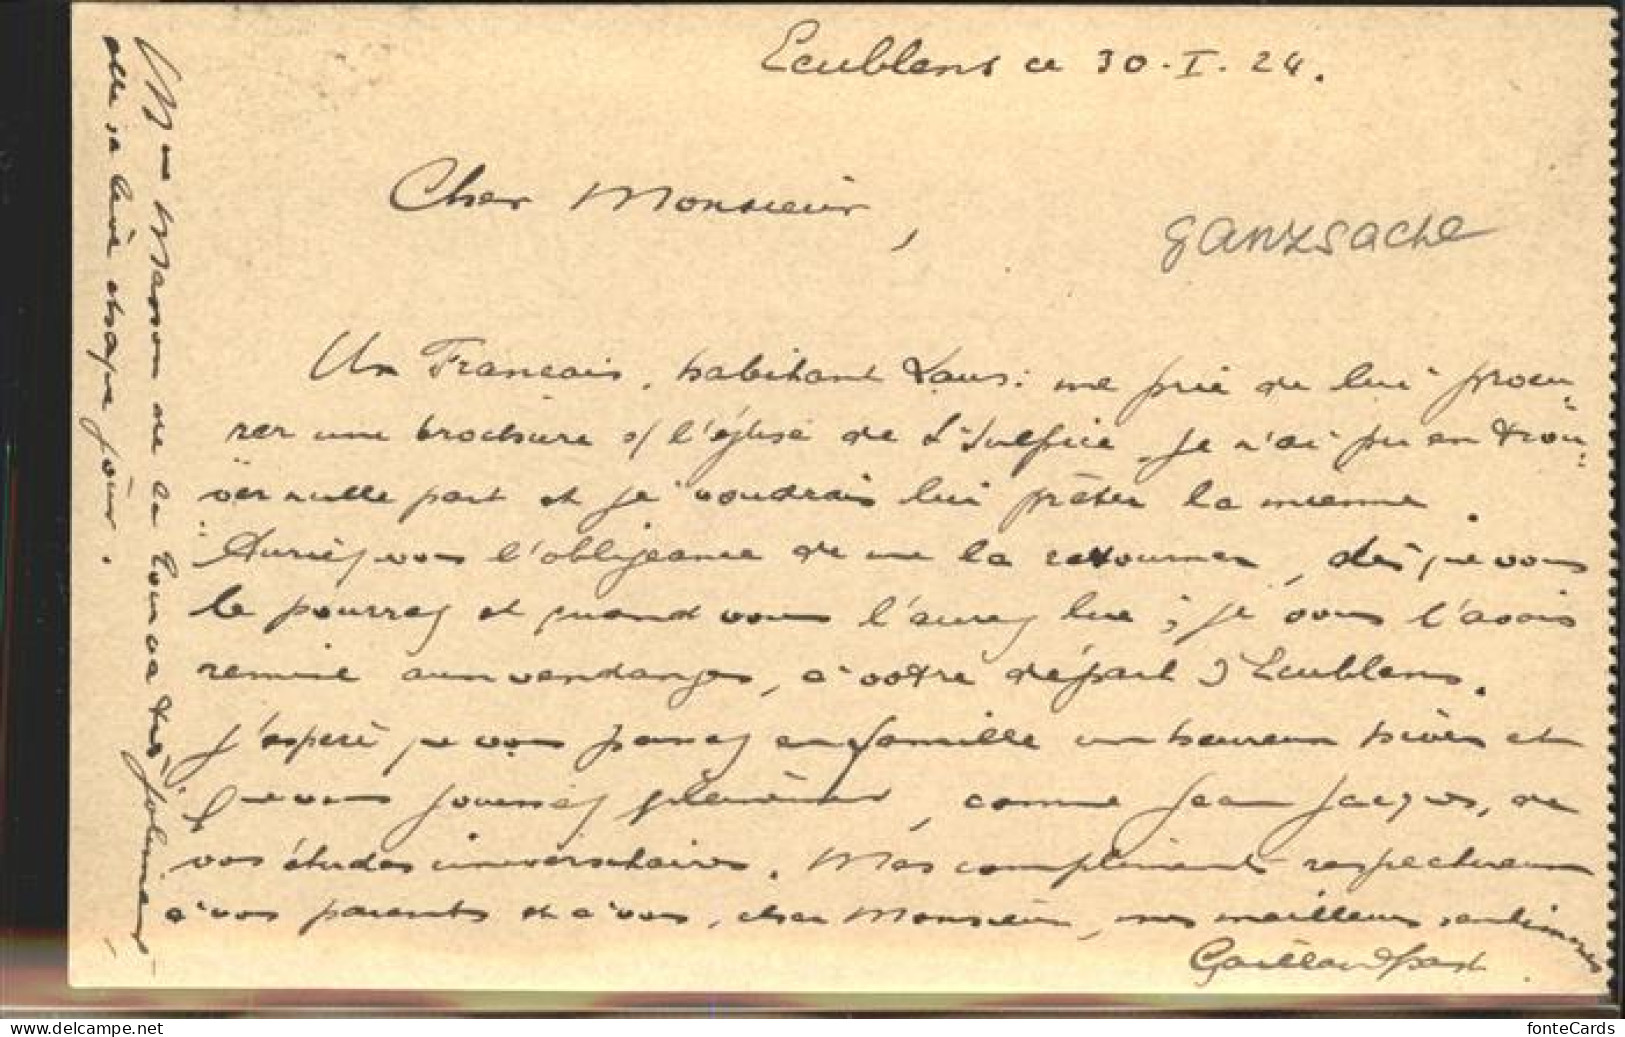 Ecublens ce 30.I.24.
Cher Monsieur,
Ganzsache
Un Francais, habitant Laus: me prie de lui procu-
rer une brochure s/ l'église de St Sulpice. Je n'ai pu en trou-
ver nulle part et je voudrais lui prêter la mienne.
Auriez vous l'obligeance de me la retourner, dès que vous
le pourrez et quand vous l'aurez lue; je vous l'avais
remise aux vendanges, à votre départ d'Ecublens.
J'espère que vous passez en famille un heureux hiver et
que vous jouissez, comme Jean Jacques, de
vos études universitaires. Mes compliments respectueux
à vos parents et à vous, cher Monsieur, mes meilleurs sentiments
Gaillard past.
Mme Masson de la Tour va très
elle se lève chaque jour.
ak-ansichtskarte.com
fonteCards